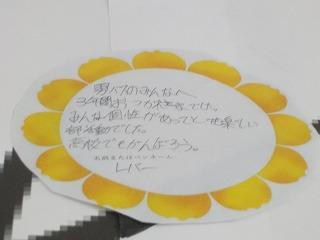 男バスのみんなへ
3年間おつかれさまでした。
みんな個性があってと一世楽しい
部活動でした。
高校でもがんばろう。
お名前またはペンネーム
レバー